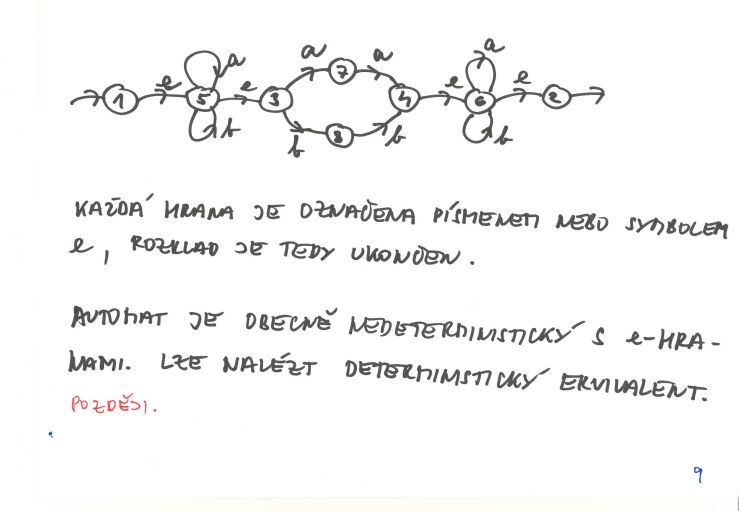 a a a a
1 e 5 e 3 7 4 e 6 e 2
b b 8 b b
KAŽDÁ HRANA JE OZNAČENA PÍSMENEM NEBO SYMBOLEM
e, ROZKLAD JE TEDY UKONČEN.
AUTOMAT JE OBECNĚ NEDETERMINISTICKÝ S e-HRA-
NAMI. LZE NALÉZT DETERMINISTICKÝ EKVIVALENT.
POZDĚJI.
9